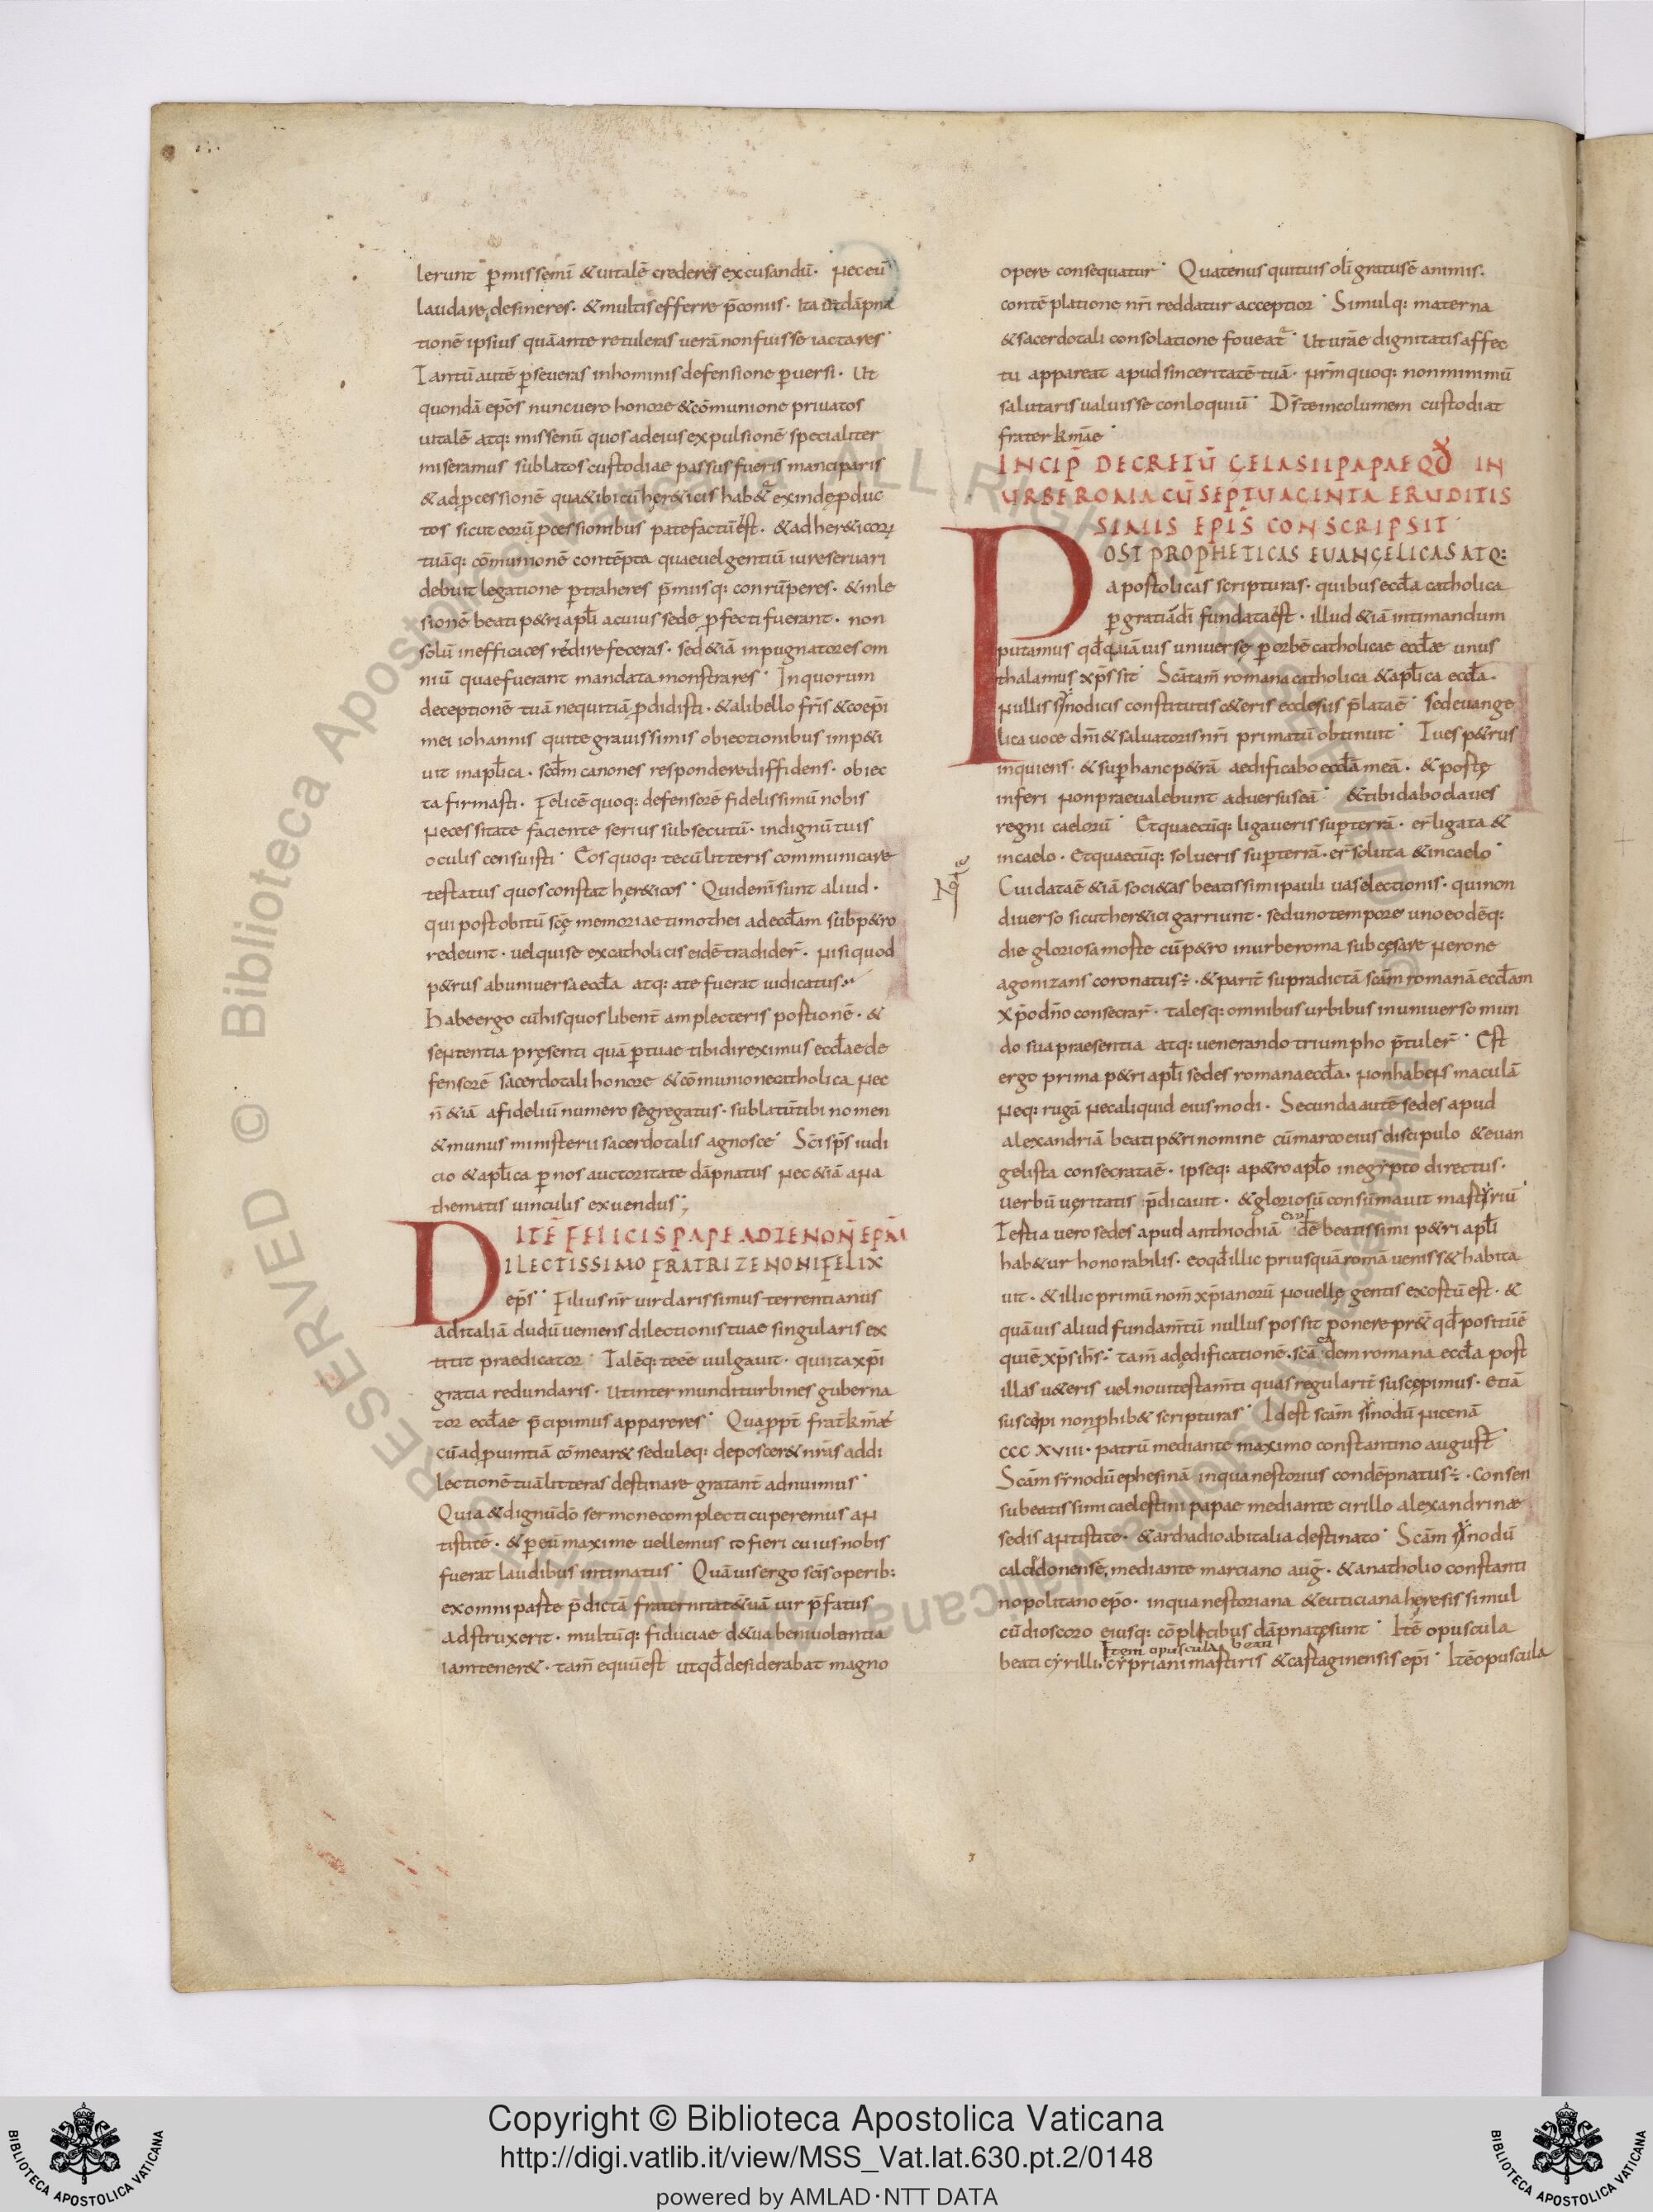 lerunt p̄missemī & uitalē crederes excusandū· Nec eū
laudare desineres· & multis efferre p̄coniis· Ita ut dāpna
tionē ipsius quā ante retuleras uerā non fuisse iactares·
Tantū autē p̄seueras inhominis defensione p̄uersi· Ut
quondā ep̄os nunc uero honore & cōmunione priuatos
uitalē atq: missenū quos adeius expulsionē specialiter
miseramus sublatos custodiae passus fueris mancipari
debuit legatione p̄traheres p̄miisq: conrūperes· & inle
sionē beati p&ri apłi acuius sede p̄fecti fuerant· non
solū inefficaces redire feceras· sed &iā inpugnatores om
niū quae fuerant mandata monstrares· In quorum
deceptionē tuā nequitiā p̄didisti· & a libello fr̄is & coep̄i
mei iohannis quite grauissimis obiectionibus imp&i
uit inapłica· scd̄m canones respondere diffidens· obiec
ta firmasti· Felicē quoq: defensorē fidelissimū nobis
Necessitate faciente serius subsecutū· indignū tuis
oculis censuisti· Eos quoq: tecū litteris communicare
testatus quos constat her&icos· Quid enī sunt aliud·
qui post obitū scę memoriae timothei ad eccłam sub p&ro
redeunt· uel qui se ex catholicis eidē tradider̄· Nisi quod
p&rus ab uniuersa eccła atq: a te fuerat iudicatus·
Habe ergo cū his quos libenter̄ amplecteris postionē· &
sententia pręsenti quā p̄ tuae tibi direximus eccłae de
fensorē sacerdotali honore & cōmunione catholica Nec
n̄ &iā a fideliū numero segregatus· sublatū tibi nomen
& munus ministerii sacerdotalis agnosce· Sc̄i sp̄s iudi
cio & apłica p̄ nos auctoritate dāpnatus Nec &iā ana
thematis uinculis exuendus;
ITĒ FELICIS PAPE AD ZENON̄ EPM̄
DILECTISSIMO FRATRI ZENONI FELIX
ep̄s· Filius nr̄ uir clarissimus terrentianus
ad italiā dudū ueniens dilectionis tuae singularis ex
titit praedicator· Talēq: te eē uulgauit· qui ita xp̄i
gratia redundaris· Ut inter mundi turbines guberna
tor eccłae p̄cipimus appareres· Quapropt̄ frat̄ kmē
cū ad puintiā cōmear& seduleq: deposcer& nr̄as ad di
lectionē tuā litteras destinare gratant̄ adnuimus·
Quia & dignū dō sermone complecti cuperemus an
tistitē· & p̄ eū maxime uellemus id fieri cuius nobis
fuerat laudibus intimatus· Quāuis ergo scīs operib:
ex omni paste p̄dictā fraternitat&uā uir p̄fatus
adstruxerit· multūq: fiduciae d&ua beniuolentia
iam tener&· tam̄ equū est ut qd̄ desiderabat magno
opere consequatur· Quatenus quituis olī gratus ē animis·
contēplatione nr̄i reddatur acceptior· Simulq: materna
& sacerdotali consolatione foueat̄· Ut ur̄ae dignitatis affec
tu appareat apud sinceritatē tuā· nr̄m quoq: non minimū
salutaris ualuisse conloquiū· Ds̄ te incolumem custodiat
frater kmāe·
INCIP̄ DECRETŪ GELASII PAPAE QD̄ IN
URBE ROMA CŪ SEPTUAGINTA ERUDITIS
SIMIS EPIS̄ CONSCRIPSIT·
POST PROPHETICAS EUANGELICAS ATQ:
apostolicas scripturas· quibus eccła catholica
p̄ gratiā dī fundata est· illud &iā intimandum
putamus qd̄ quāuis uniuerse p̄ orbē catholicae eccłae unus
thalamus xp̄s sit· Scātam̄ romana catholica & apłica eccła·
Nullis synodicis constitutis c&eris ecclesiis p̄lata ē· sed euange
lica uoce dn̄i & saluatoris nr̄i primatū obtinuit· Tu es p&rus
inquiens· & sup hanc p&rā aedificabo eccłā meā· & postę
inferi Non praeualebunt aduersus eā· & tibi dabo claues
regni caelorū· Et quaecūq: ligaueris sup terrā· er̄ ligata &
in caelo· Et quaecūq: solueris sup terrā· er̄ soluta & in caelo·
Cui data ē &iā soci&as beatissimi pauli uas electionis· qui non
diuerso sicut her&ici garriunt· sed uno tempore uno eodēq:
die gloriosa moste cū p&ro in urbe roma sub cęsare Nerone
agonizans coronatus ÷· & parit̄ supradictā scām romanā eccłam
xp̄o dn̄o consecrar̄· talesq: omnibus urbibus in uniuerso mun
do sua praesentia atq: uenerando triumpho p̄tuler̄· Est
ergo prima p&ri apłi sedes romana eccła· Non habens maculā
Neq: rugā Nec aliquid eius modi· Secunda autē sedes apud
alexandriā beati p&ri nomine cū marco eius discipulo & euan
gelista consecrata ē· ipseq: a p&ro apło in egypto directus·
uerbū ueritatis p̄dicauit· & gloriosū consūmauit mastyriū·
Testia uero sedes apud anthiochiā eius dē beatissimi p&ri apłi
hab&ur honorabilis· eo qd̄ illic priusquā romāueniss& habita
uit· & illic primū nom̄ xp̄ianorū Nouellę gentis exostū est· &
quāuis aliud fundam̄tū nullus possit ponere pr& qd̄ positū ē
qui ē xp̄s ih̄s· tam̄ ad ędificationē· scā eadem romana eccła post
illas u&eris uel noui testam̄ti quas regularit̄ suscępimus· etiā
suscępi non phib& scripturas· Idest scām synodū Nicenā
ccc xviii· patrū mediante maximo constantino august̄
Scām synodū ephesinā in qua nestorius condēpnatus ÷· Consen
su beatissimi caelestini papae mediante cirillo alexandrinae
sedis antistite· & archadio ab italia destinato· Scām synodū
calcidonensē, mediante marciano aug̃· & anatholio constanti
nopolitano ep̄o· in qua nestoriana & euticiana heresis simul
cū dioscoro eiusq: cōplicibus dāpnatę sunt· Itē opuscula
beati cyrilli· Item opuscula beati cypriani mastiris & castaginensis ep̄i· Itē opuscula
Copyright © Biblioteca Apostolica Vaticana
http://digi.vatlib.it/view/MSS_Vat.lat.630.pt.2/0148
powered by AMLAD·NTT DATA
BIBLIOTECA APOSTOLICA VATICANA
BIBLIOTECA APOSTOLICA VATICANA